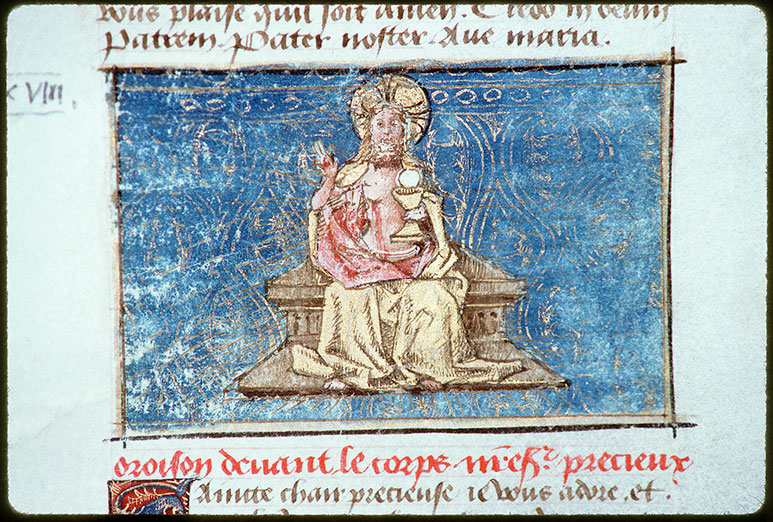 vous plaise quil soit amen. Credo in deum
Patrem. Pater noster. Aue maria.
XVIII
oroison deuant le corps nrẽ sr̃ precieux
Saincte chair precieuse ie vous adore. et.